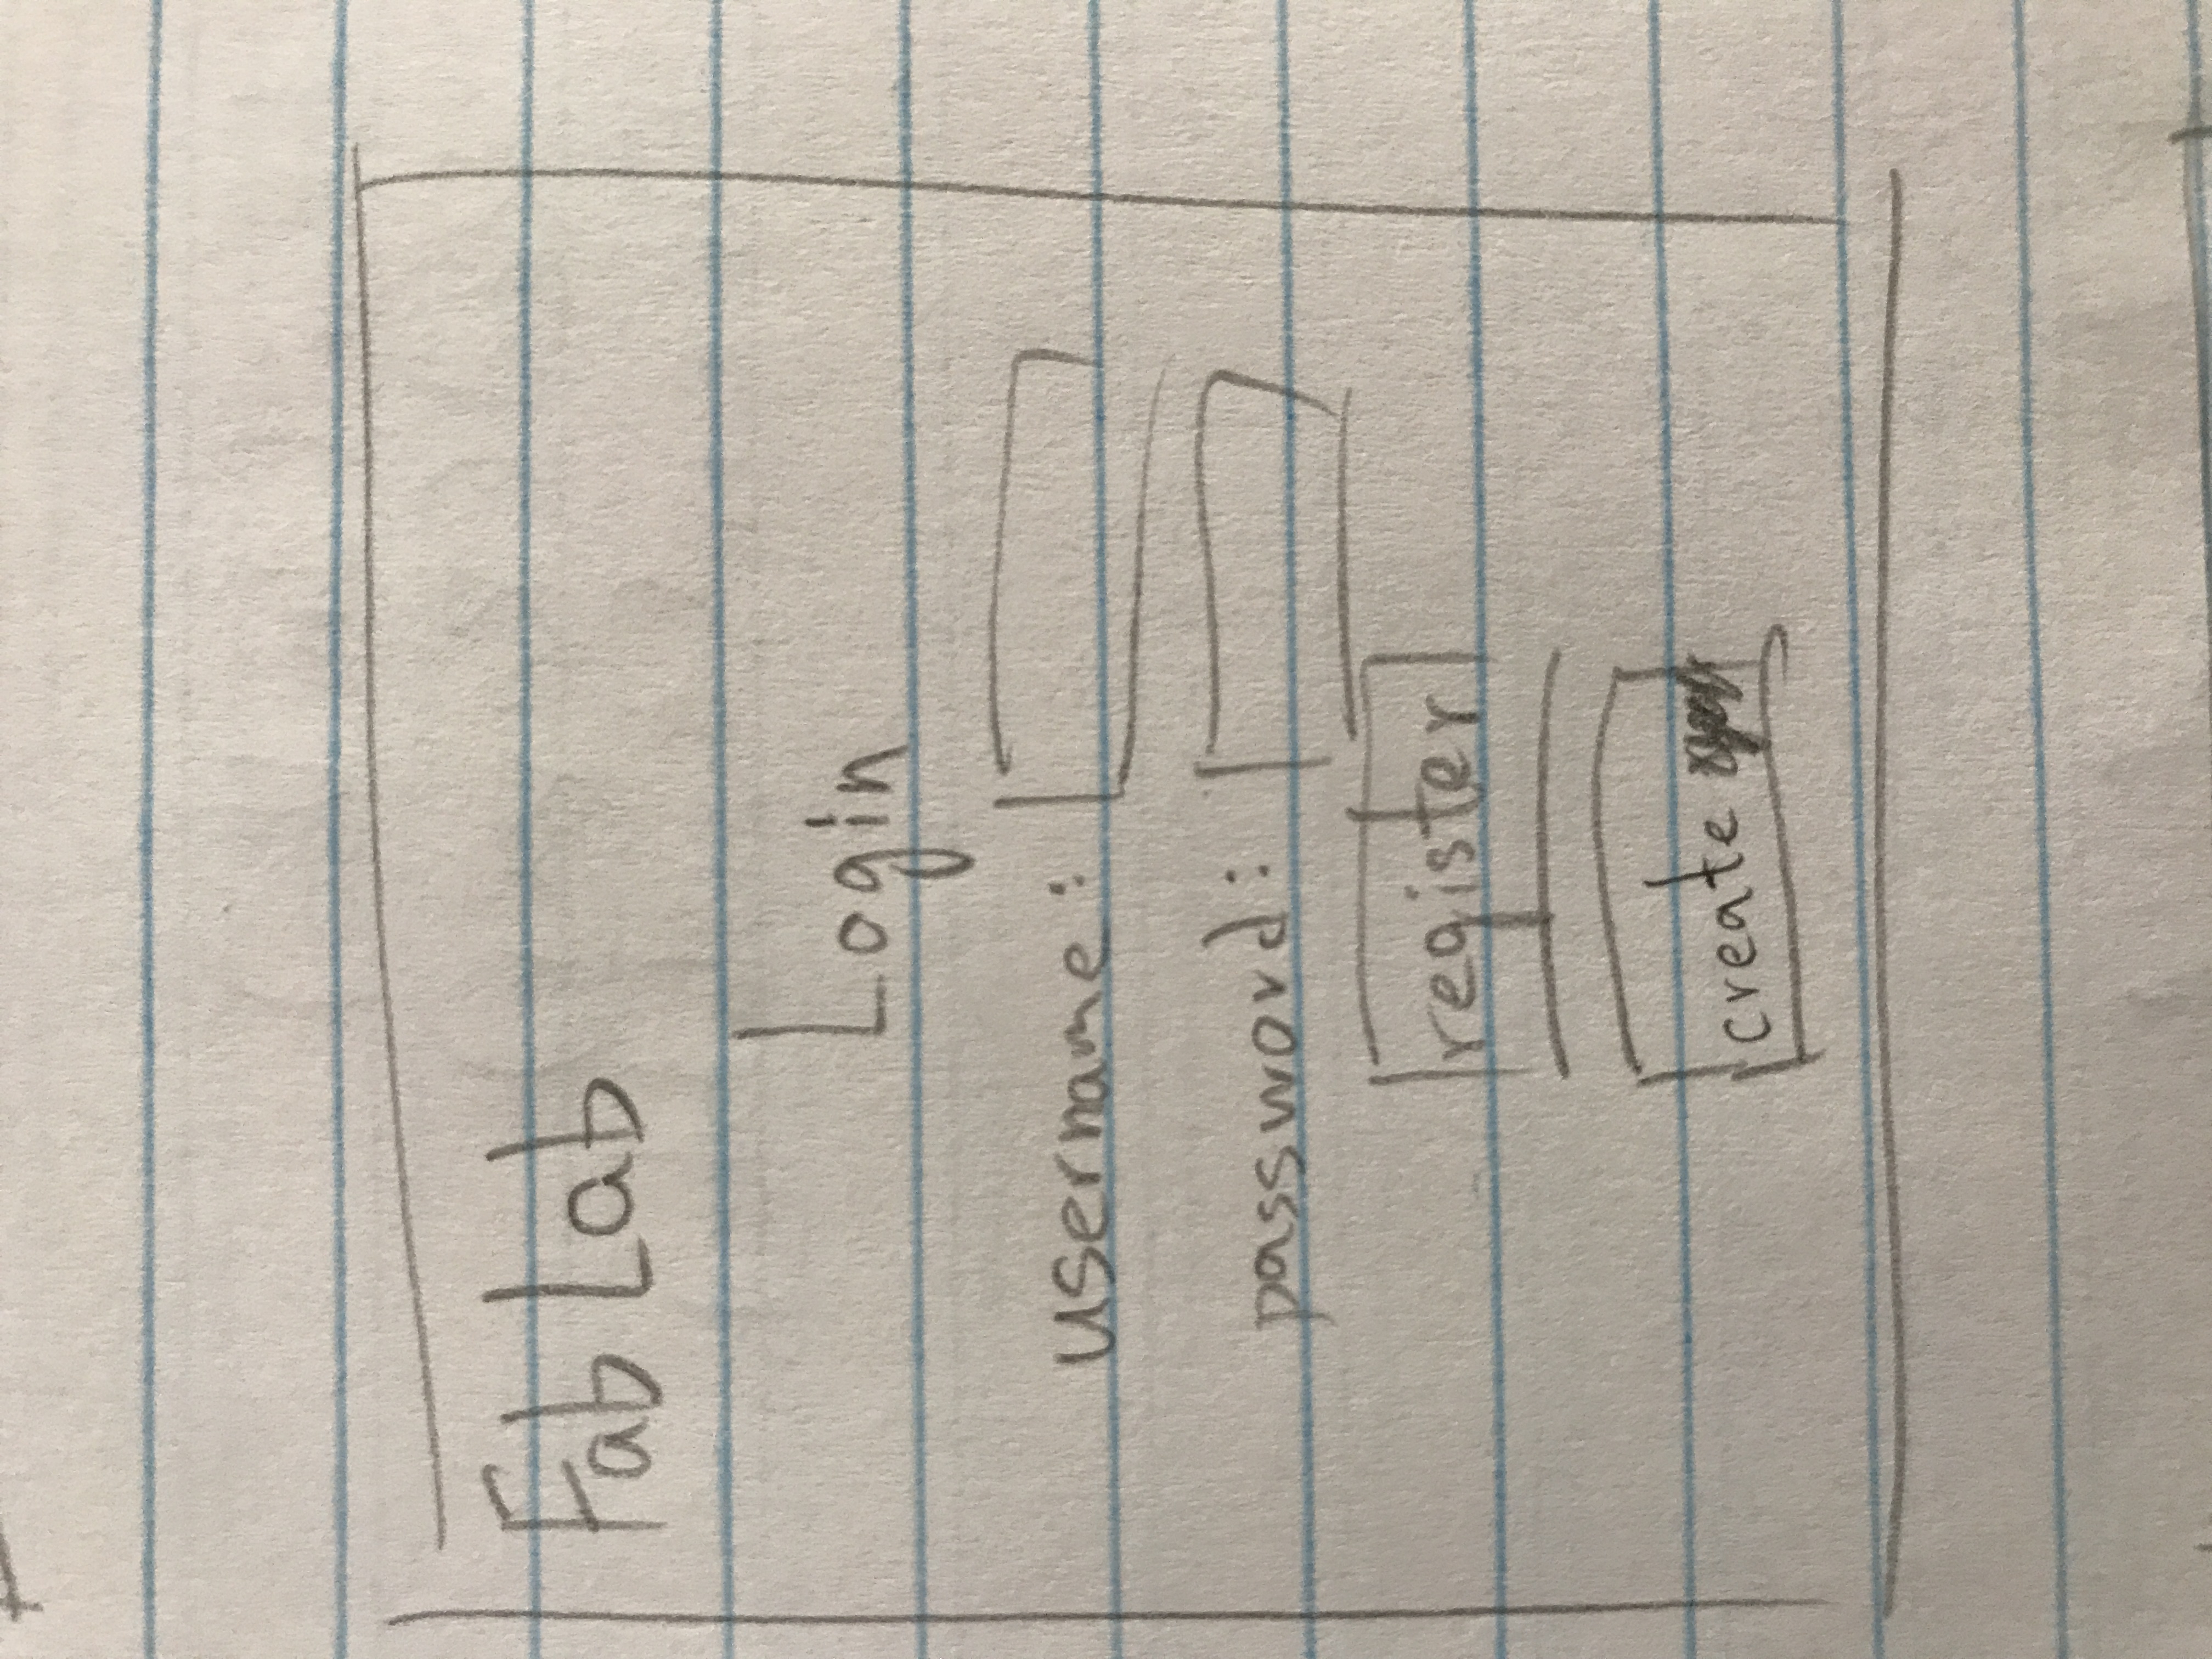 Fab Lab
Login
username:
password:
register
create